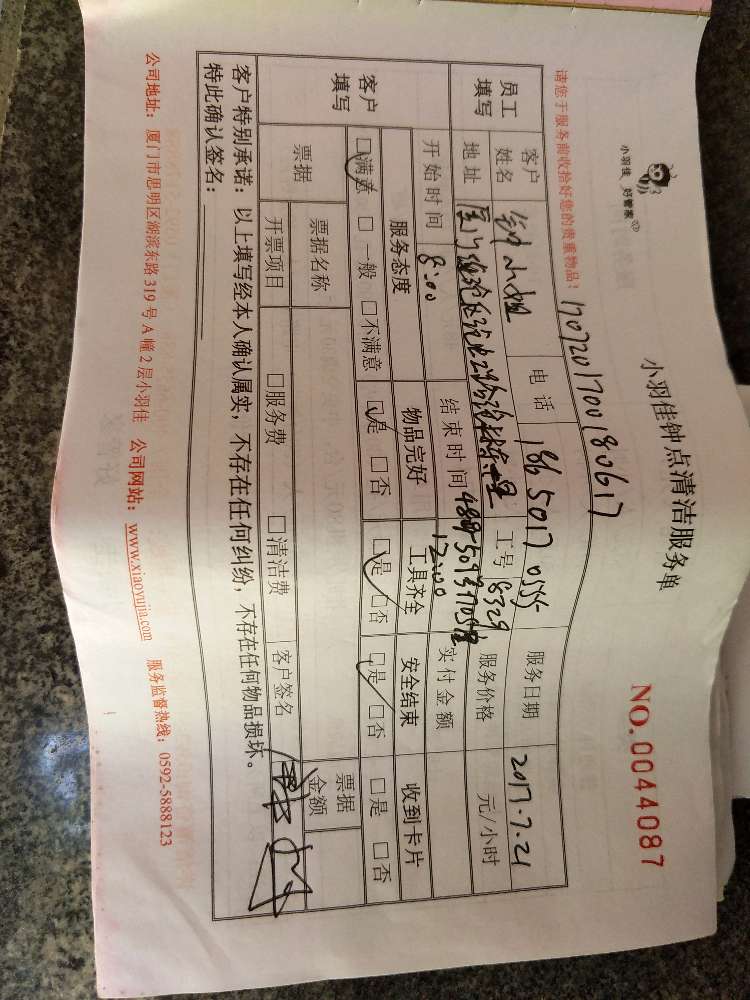 小羽佳 好管家
小羽佳钟点清洁服务单
NO.0044087
请您于服务前收拾好您的贵重物品：
1707201700180617
员工填写 客户姓名 钟小姐 电话 186 5017 0555 服务日期 2017.7.21
地址 工号 8329 服务价格 元/小时
开始时间 8:00 结束时间 12:00 实付金额
客户填写 服务态度 物品完好 工具齐全 安全结束 收到卡片
□满意 □一般 □不满意 □是 □否 □是 □否 □是 □否 □是 □否
票据 票据名称 票据金额
开票项目 □服务费 □清洁费 客户签名
客户特别承诺：以上填写经本人确认属实，不存在任何纠纷，不存在任何物品损坏。
特此确认签名：
公司地址：厦门市思明区湖滨东路 319 号 A 幢 2 层小羽佳 公司网站：www.xiaoyujia.com 服务监督热线：0592-5888123